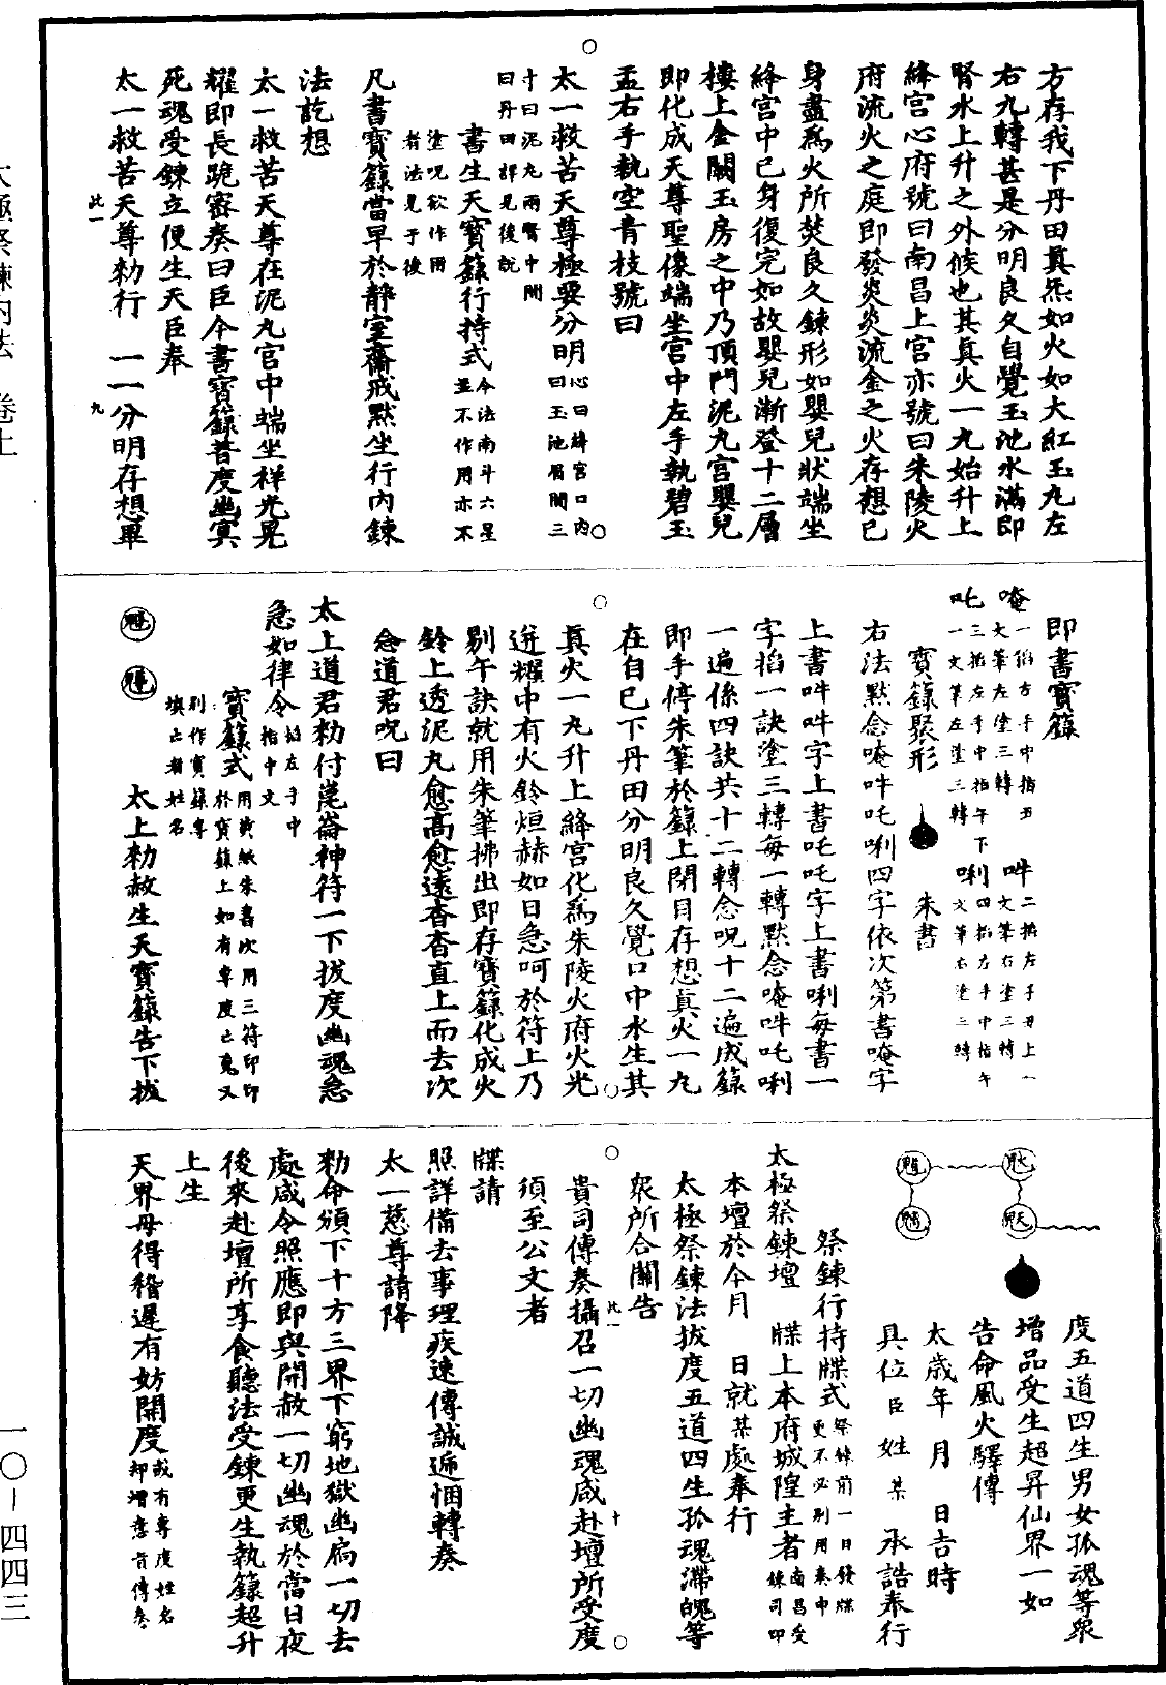 方存我下丹田眞炁如火如大紅玉丸左
右九轉甚是分明良久自覺玉池水滿即
腎水上升之外候也其眞火一丸始升上
絳宮心府號曰南昌上宮亦號曰朱陵火
府流火之庭即發炎炎流金之火存想已
身盡爲火所焚良久鍊形如嬰兒狀端坐
絳宮中已身復完如故嬰兒漸登十二層
樓上金闕玉房之中乃頂門泥丸宮嬰兒
即化成天尊聖像端坐宮中左手執碧玉
盂右手執空青枝號曰
太一救苦天尊極要分明心曰絳宮口内曰玉池眉間三
寸曰泥丸兩腎中間曰丹田詳見後說
書生天寶籙行持式今法南斗六星並不作用亦不
塗呪欲作用者法見于後
凡書寶籙當早於靜室齋戒默坐行内鍊
法訖想
太一救苦天尊在泥丸宮中端坐祥光晃
耀即長跪密奏曰臣今書寶籙普度幽冥
死魂受鍊立便生天臣奉
太一救苦天尊勑行　一一分明存想畢
此一　九
即書寶籙
唵一掐右手中指丑文筆左塗三轉　吽二掐左手丑上一文筆右塗三轉
吒三掐左手中指午下一文筆左塗三轉　唎四掐右手中指午文筆右塗三轉
寶籙聚形　朱書
右法默念唵吽吒唎四字依次第書唵字
上書吽吽字上書吒吒字上書唎每書一
字掐一訣塗三轉每一轉默念唵吽吒唎
一遍係四訣共十二轉念呪十二遍成籙
即手停朱筆於籙上閉目存想眞火一丸
在自己下丹田分明良久覺口中水生其
眞火一丸升上絳宮化爲朱陵火府火光
迸耀中有火鈴烜赫如日急呵於符上乃
剔午訣就用朱筆拂出即存寶籙化成火
鈴上透泥丸愈高愈遠杳杳直上而去次
念道君呪曰
太上道君勑付崑崙神符一下拔度幽魂急
急如律令掐左手中指中文
寶籙式用黃紙朱書次用三符印印於寶籙上如有專度亡魂又
別作寶籙專填亡者姓名
太上勑赦生天寶籙告下拔
度五道四生男女孤魂等衆
增品受生超昇仙界一如
告命風火驛傳
太歲年　月　日吉時
具位臣　姓某　承誥奉行
祭鍊行持牒式祭鍊前一日發牒更不必別用奏申
太極祭鍊壇　牒上本府城隍主者南昌受鍊司印
本壇於今月　日就某處奉行
太極祭鍊法拔度五道四生孤魂滯魄等
衆所合關告
此一　十
貴司傳奏攝召一切幽魂咸赴壇所受度
須至公文者
牒請
照詳備去事理疾速傳誠遞悃轉奏
太一慈尊請降
勑命頒下十方三界下窮地獄幽扃一切去
處咸令照應即與開赦一切幽魂於當日夜
後來赴壇所享食聽法受鍊更生執籙超升
上生
天界毋得稽遲有妨開度或有專度姓名却增意旨傳奏
太極祭鍊内法　卷上
一〇－四四三